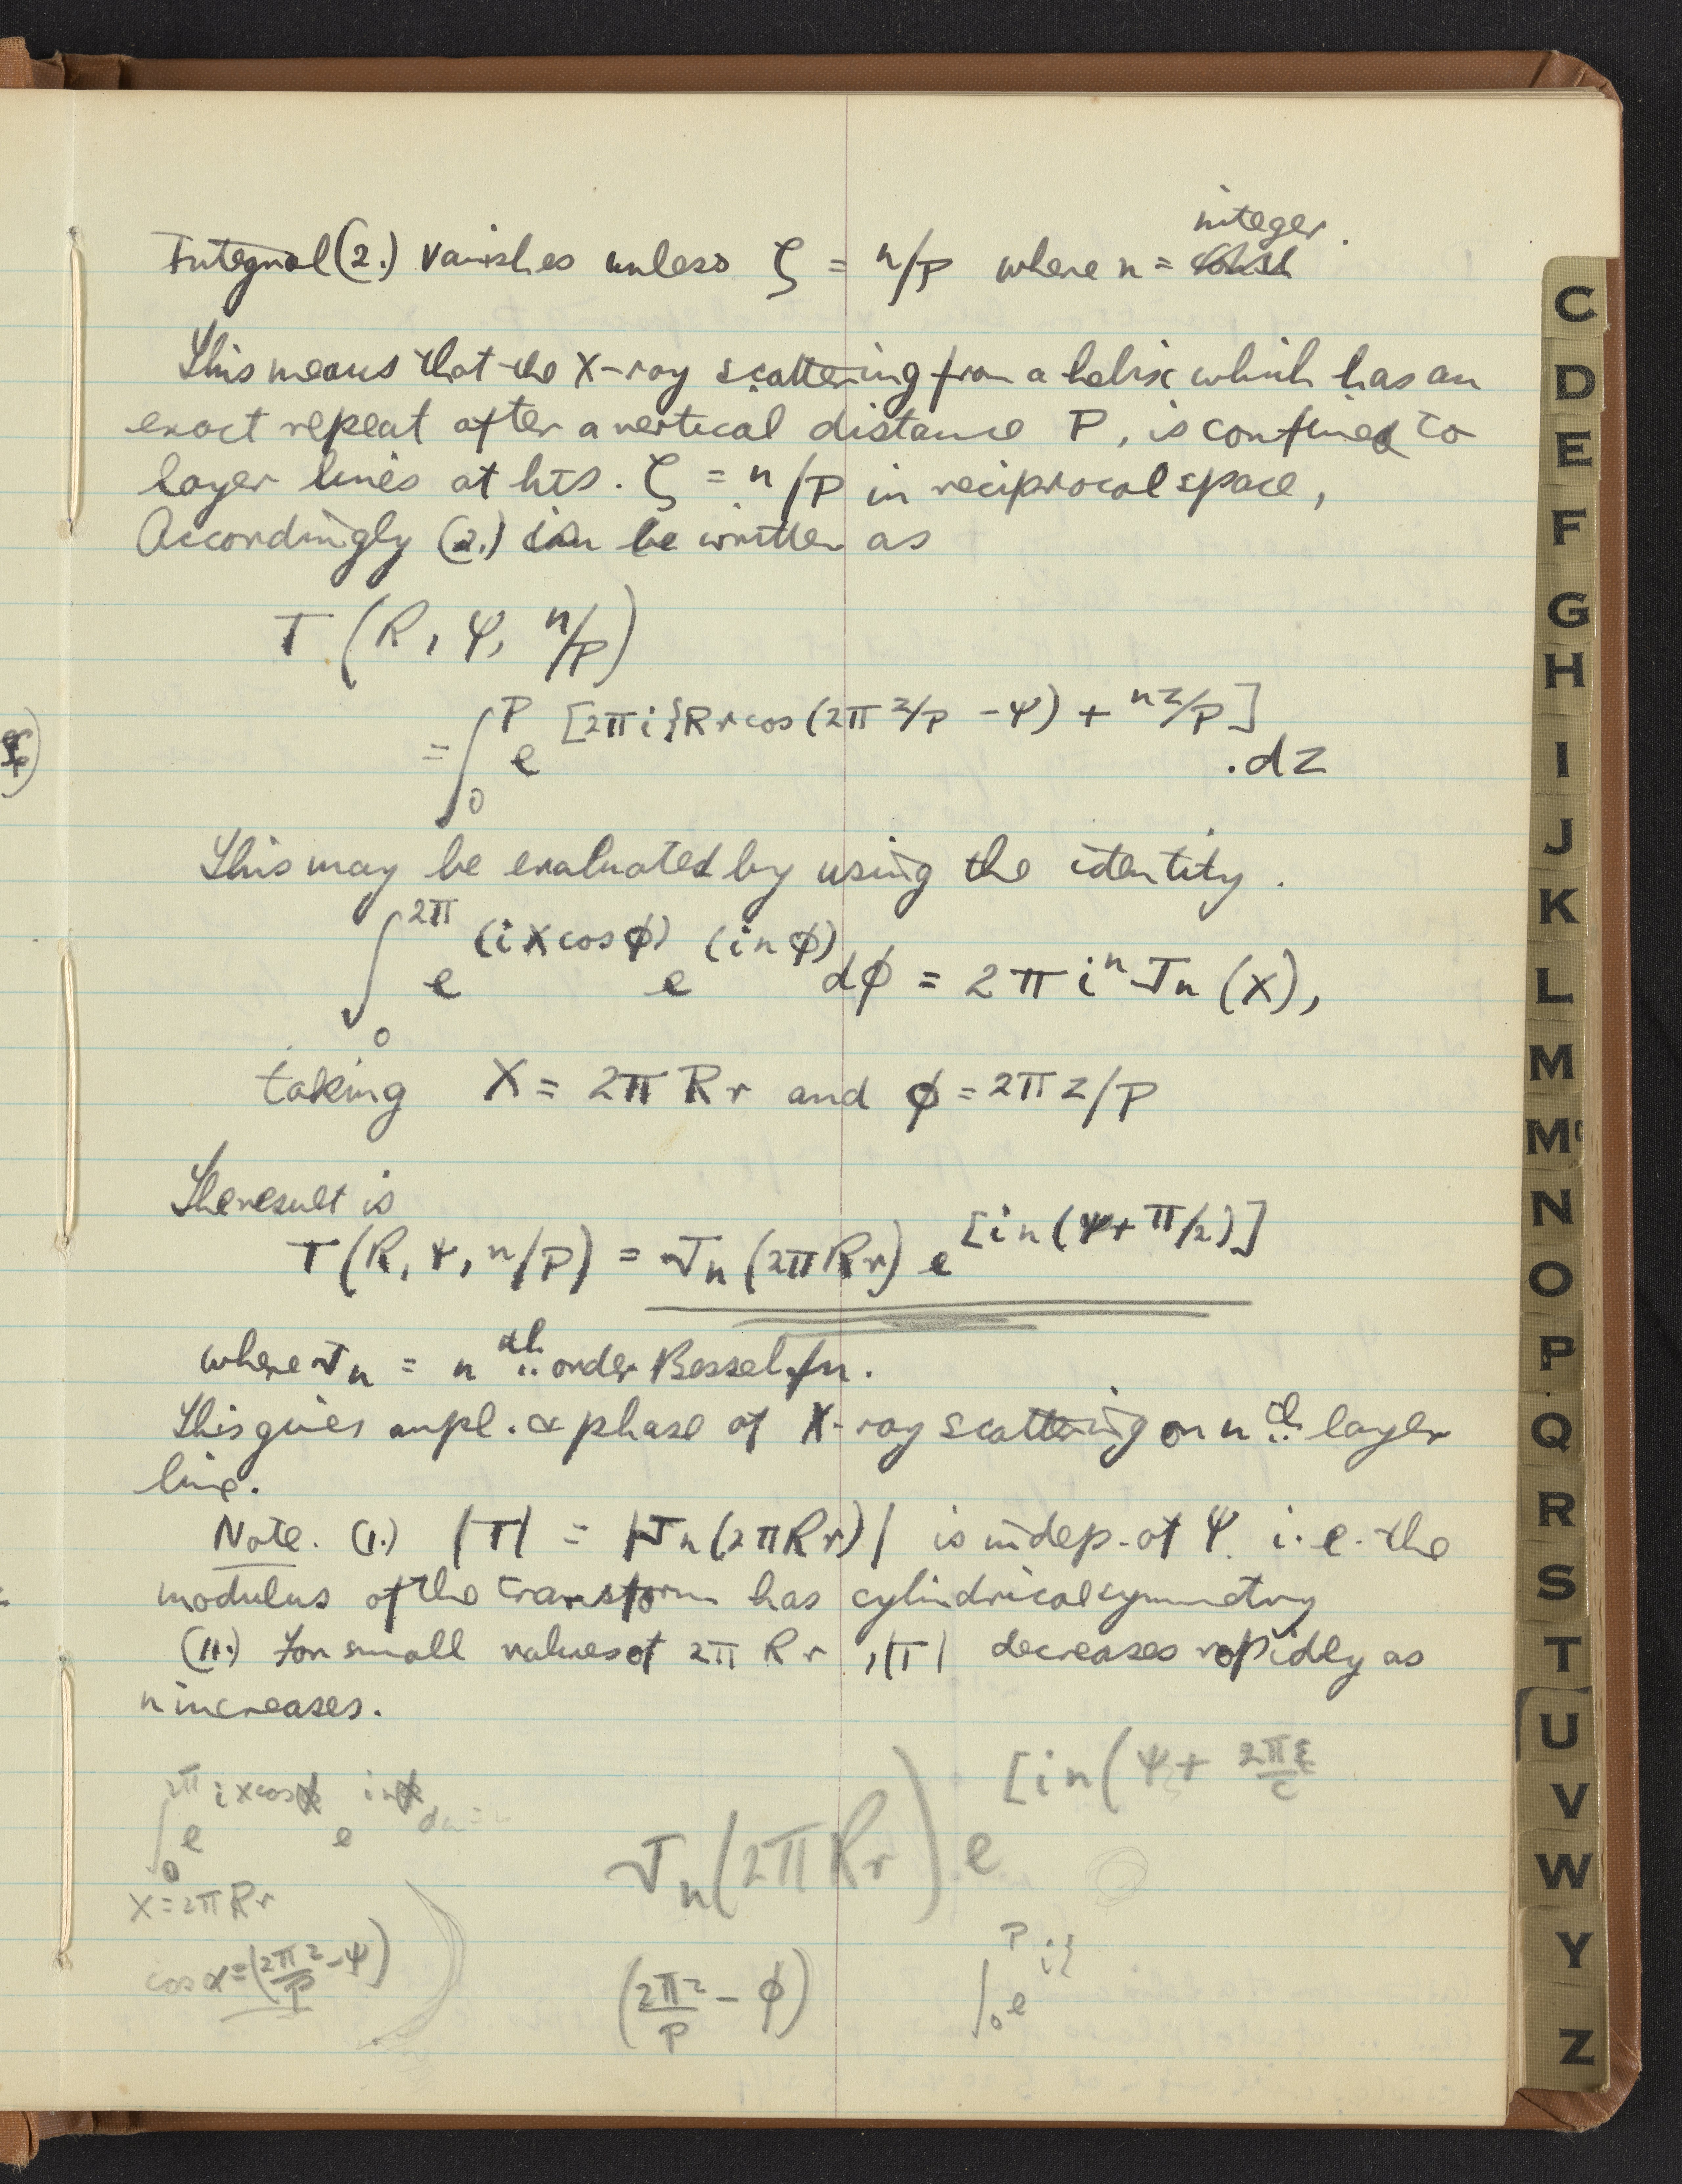 integer.
Integral (2.) vanishes unless ζ = n/P where n =
This means that the X-ray scattering from a helix which has an
exact repeat after a vertical distance P, is confined to
layer lines at hts. ζ = n/P in reciprocal space,
Accordingly (2.) can be written as
T (R, Ψ, n/P)
= ∫₀^P e^[2πi{Rr cos(2πz/P - Ψ) + nz/P] .dz
This may be evaluated by using the identity.
∫₀^2π e^(ix cosφ) e^(inφ) dφ = 2π iⁿ Jn (x),
taking X = 2πRr and φ = 2πz/P
The result is
T(R, Ψ, n/P) = Jn (2πRr) e^[in(Ψ + π/2)]
where Jn = n th order Bessel fn.
This gives ampl. & phase of X-ray scattering on n th layer
line.
Note. (I.) |T| = |Jn(2πRr)| is indep. of Ψ. i.e. the
modulus of the transform has cylindrical symmetry
(II.) For small values of 2πRr, |T| decreases rapidly as
n increases.
∫₀^2π e^ix cosα e^inα dα =
Jn(2πRr) e^[in(Ψ + 2πξ/c
x = 2πRr
cos α = (2πz/P - Ψ)
(2πz/P - φ)
∫₀^P e^i{
C
D
E
F
G
H
I
J
K
L
M
Mc
N
O
P
Q
R
S
T
U
V
W
Y
Z